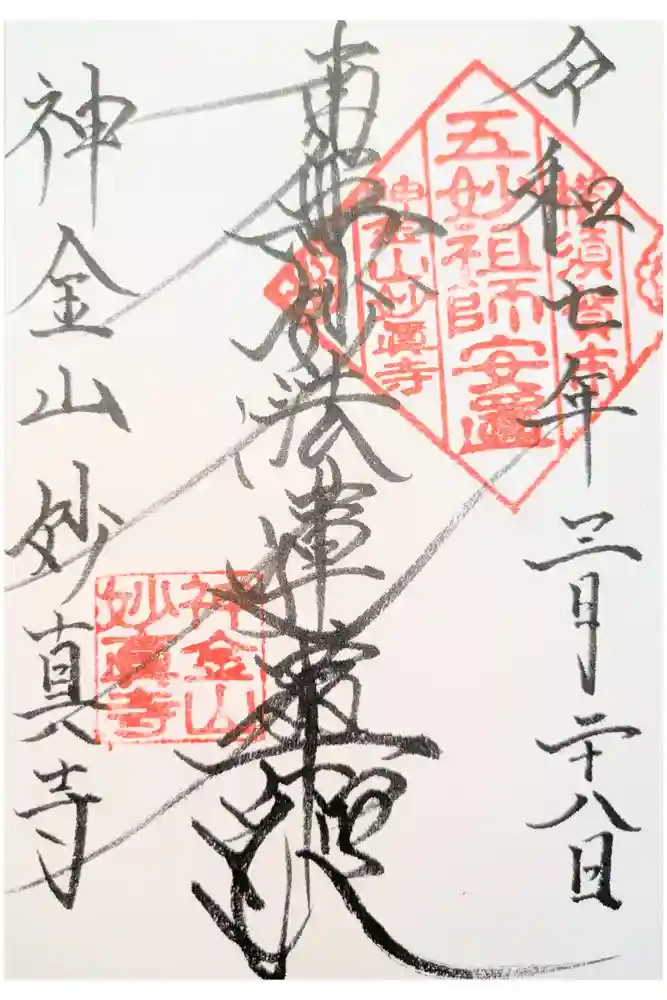 令和七年三月二十八日
横須賀市
五妙祖師安置
神金山妙眞寺
南無妙法蓮華経
神金山
妙真寺
神金山妙真寺